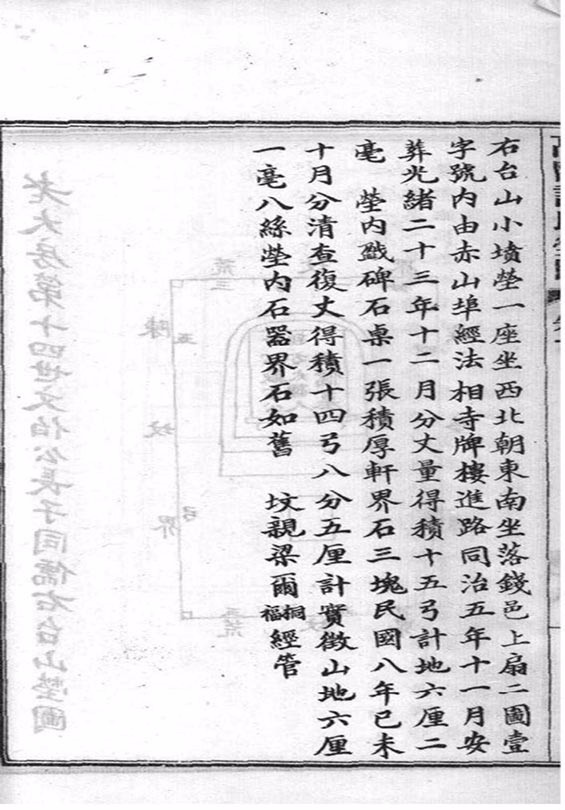 右台山小墳塋一座坐西北朝東南坐落錢邑上扇二圖壹
字號內由赤山埠經法相寺牌樓進路同治五年十一月安
葬光緒二十三年十二月分丈量得積十五弓計地六厘二
毫　塋內戤碑石桌一張積厚軒界石三塊民國八年已未
十月分清查復丈得積十四弓八分五厘計實徵山地六厘
一毫八絲塋內石器界石如舊　坟親梁爾桐福經管
老大房第十四世文伯公長子同儒右台山塋圖